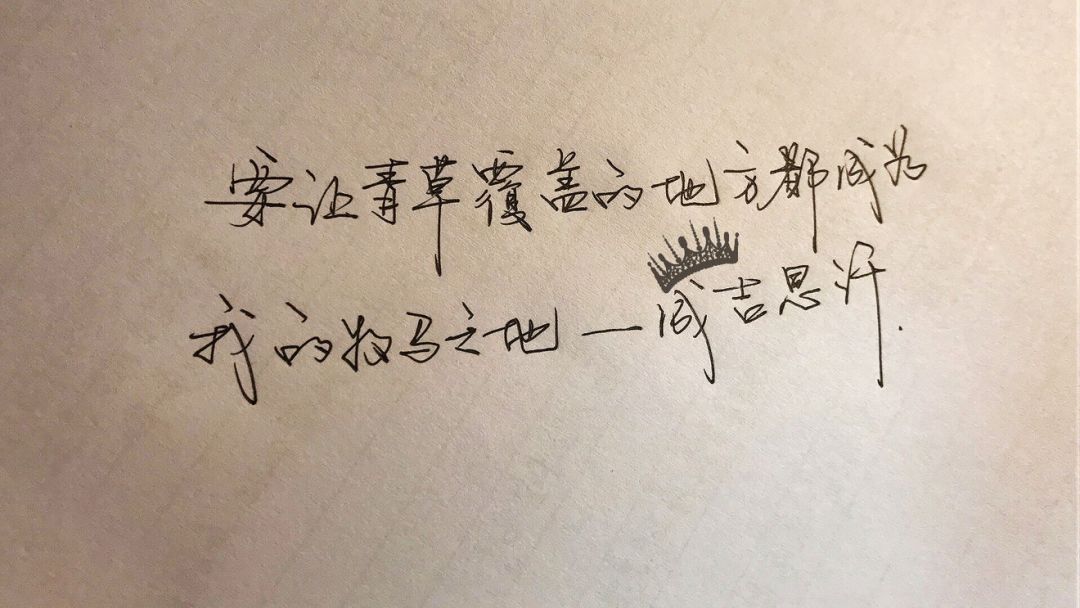 要让青草覆盖的地方都成为
我的牧马之地一成吉思汗.